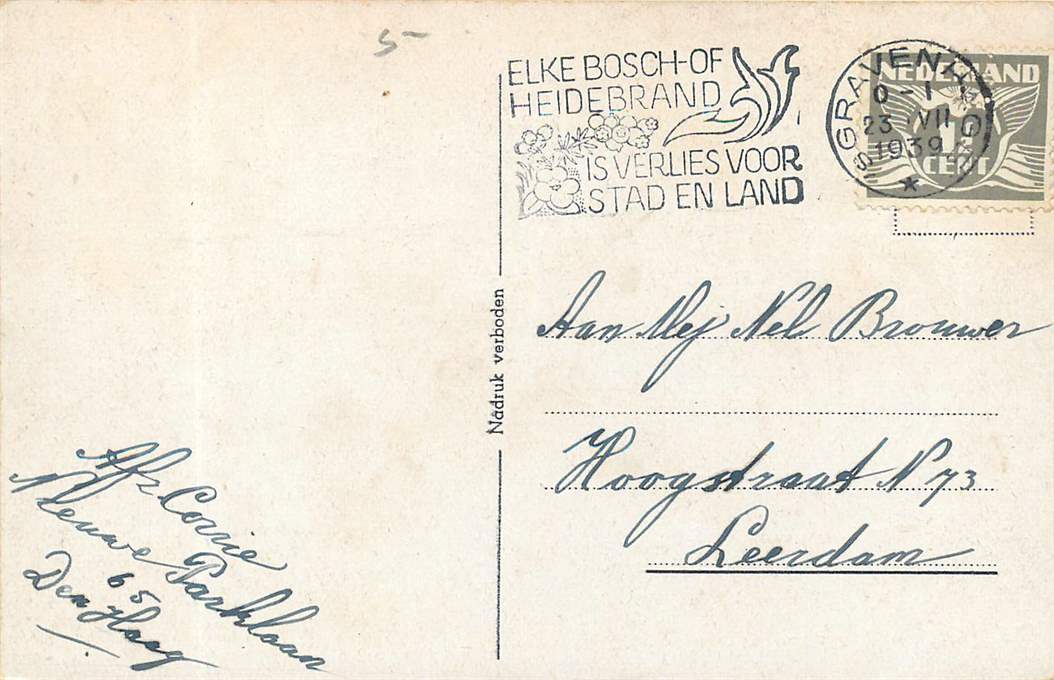 5-
ELKE BOSCH-OF
HEIDEBRAND
IS VERLIES VOOR
STAD EN LAND
'SGRAVENHAGE
0-1
23 VII
1939
NEDERLAND
CENT
Nadruk verboden
Aan Mej Nel Brouwer
Hoogstraat N 73
Leerdam
Afz Corrie
Nieuwe Parklaan
65
Den Haag